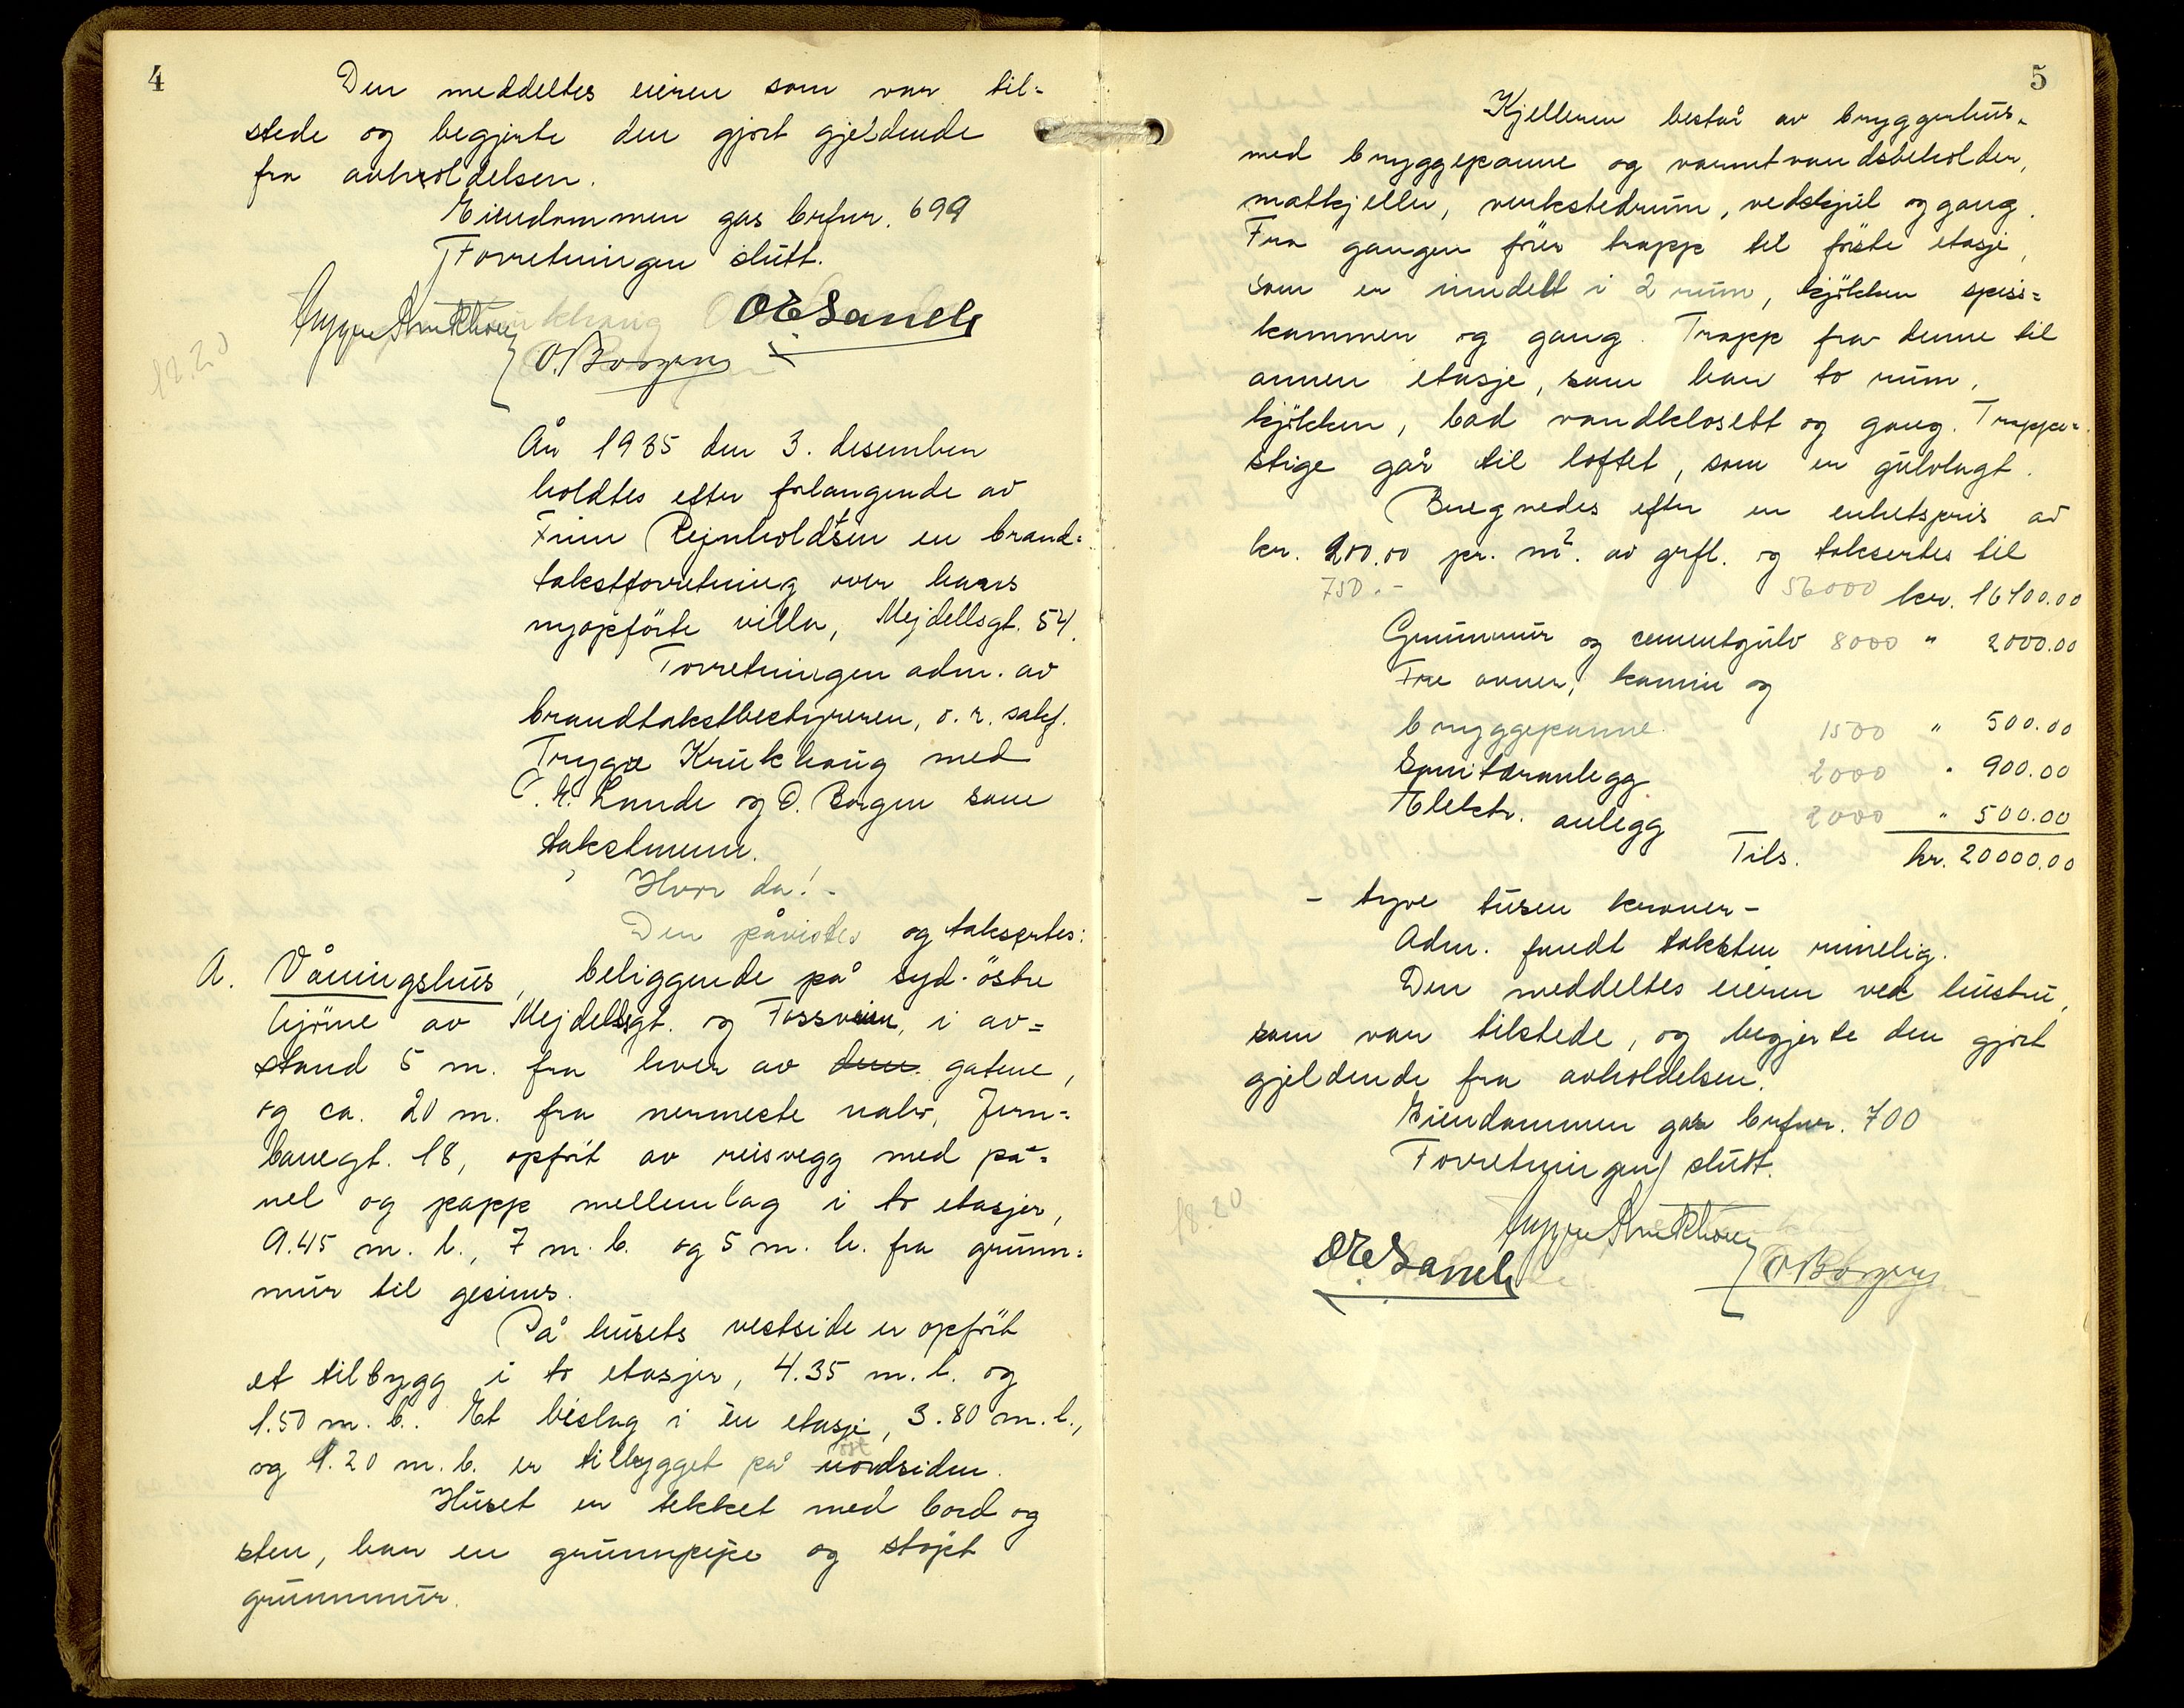 4
Den meddeltes eieren som var til-
stede og begjerte den gjort gjeldende
fra avholdelsen.
Eiendommen gas brfnr. 699
Forretningen slutt.
Trygve Krukhaug O E Lande
O. Borgen
18.20
År 1935 den 3. desember
holdtes efter forlangende av
Finn Rejnholdtsen en brand-
takstforretning over hans
nyopførte villa, Mejdellsgt. 54.
Forretningen adm. av
brandtakstbestyreren, o. r. sakf.
Trygve Krukhaug med
O. E. Lande og O. Borgen som
takstmenn.
Hvor da! -
Den påvistes og taksertes:
A. Våningshus, beliggende på syd-østre
hjørne av Mejdellsgt. og Fossveien, i av-
stand 5 m. fra hver av gatene,
og ca. 20 m. fra nermeste nabo, Jern-
banegt. 18, opført av reisvegg med pa-
nel og papp mellemlag i to etasjer,
9.45 m. l., 7 m. b. og 5 m. h. fra grunn-
mur til gesims.
På husets vestside er opført
et tilbygg i to etasjer, 4.35 m. l. og
1.50 m. b. Et bislag i én etasje, 3.80 m. l.,
øst
og 1.20 m. b. er tilbygget på nordsiden.
Huset er tekket med bord og
sten, har en grunnpipe og støpt
grunnmur.
5
Kjelleren består av bryggerhus
med bryggepanne og varmtvandsbeholder,
matkjeller, verkstedrum, vedskjul og gang.
Fra gangen fører trapp til første etasje,
som er inndelt i 2 rum, kjøkken spiss-
kammer og gang. Trapp fra denne til
annen etasje, som har to rum,
kjøkken, bad vandklosett og gang. Trappe-
stige går til loftet, som er gulvlagt.
Beregnedes efter en enhetspris av
kr. 200.00 pr. m². av grfl. og taksertes til
750.- 56000 kr. 16100.00
Grunnmur og cementgulv 8000 " 2000.00
Tre ovner, kamin og
bryggepanne 1500 " 500.00
Sanitæranlegg 2000 " 900.00
Elektr. anlegg 2000 " 500.00
Tils. kr. 20000.00
- tyve tusen kroner -
Adm. fandt taksten rimelig.
Den meddeltes eieren ved hustru,
som var tilstede, og begjerte den gjort
gjeldende fra avholdelsen.
Eiendommen gas brfnr. 700
Forretningen slutt.
18.20
Trygve Krukhaug
O E Lande O Borgen